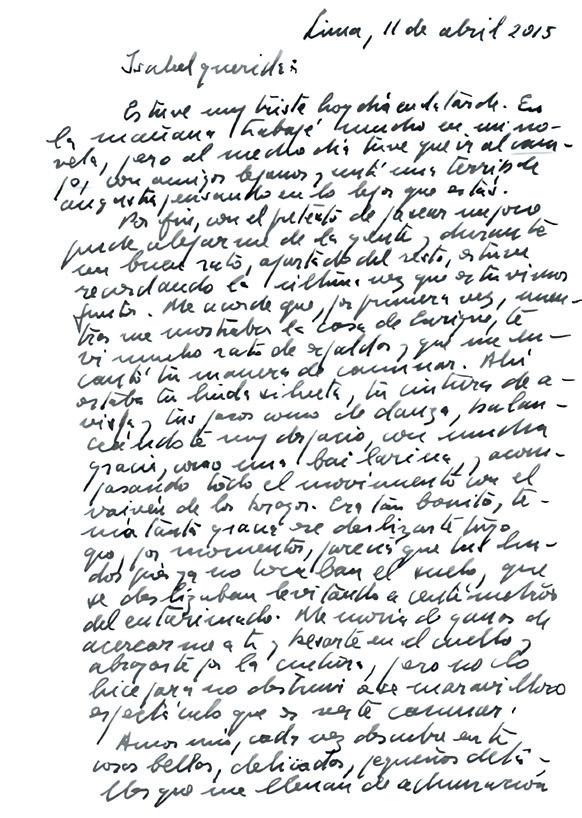 Lima, 11 de abril 2015
Isabel querida:
Estuve muy triste hoy día en la tarde. En
la mañana trabajé mucho en mi no-
vela, pero al medio día tuve que ir al cam-
po, con amigos lejanos, y sentí una terrible
angustia pensando en lo lejos que estás.
Por fin, con el pretexto de pasear un poco
pude alejarme de la gente y durante
un buen rato, apartado del resto, estuve
recordando la última vez que estuvimos
juntos. Me acordé que, por primera vez, mien-
tras me mostrabas la casa de Enrique, te
vi mucho rato de espaldas y que me en-
cantó tu manera de caminar. Ahí
estaba tu linda silueta, tu cintura de a-
vispa y tus pasos como de danza, balan-
ceándote muy despacio, con mucha
gracia, como una bailarina, y acom-
pasando todo el movimiento con el
vaivén de los brazos. Era tan bonito, te-
nía tanta gracia ese deslizarte tuyo
que, por momentos, parecía que tus lin-
dos pies ya no tocaban el suelo, que
se deslizaban levitando a centímetros
del entarimado. Me moría de ganas de
acercarme a ti y besarte en el cuello y
abrazarte por la cintura, pero no lo
hice para no obstruir ese maravilloso
espectáculo que es verte caminar.
Amor mío, cada vez descubro en ti
cosas bellas, delicadas, pequeños deta-
lles que me llenan de admiración